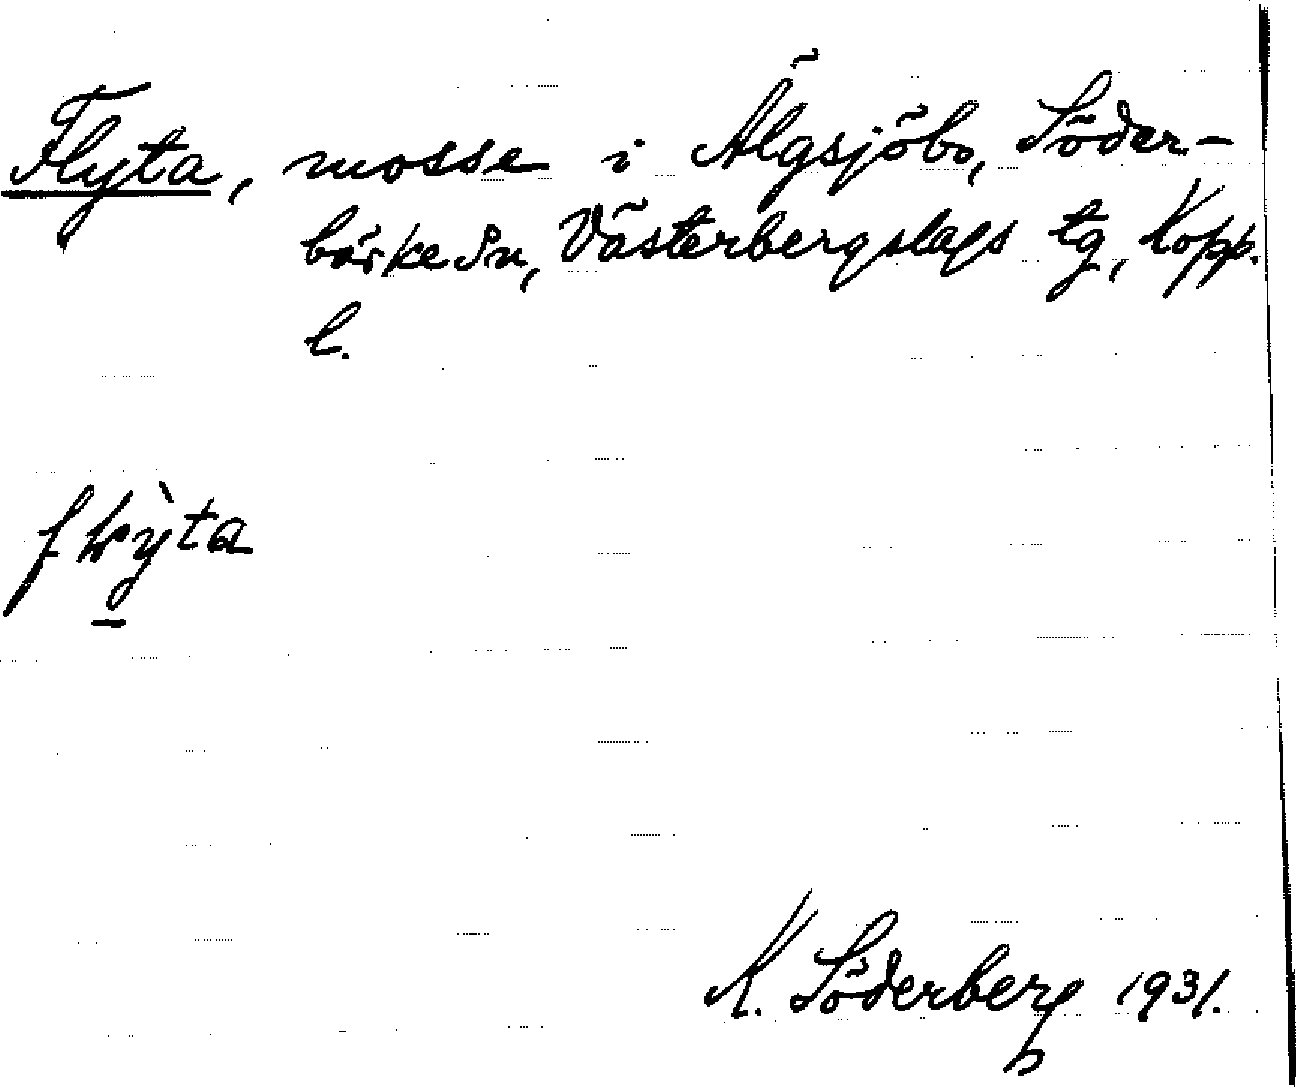 Flyta, mosse i Älgsjöbo, Söder-
bärke sn, Västerbergslags tg, Kopp.
l.
flỳta
K. Söderberg 1931.